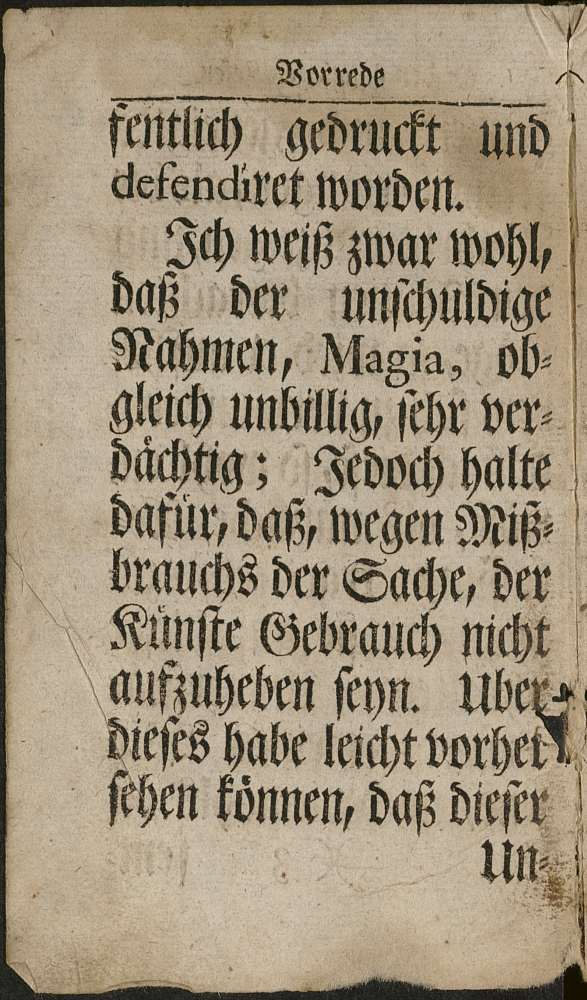 Vorrede
fentlich gedruckt und
defendiret worden.
Ich weiß zwar wohl,
daß der unschuldige
Nahmen, Magia, ob-
gleich unbillig, sehr ver-
dächtig; Jedoch halte
dafür, daß, wegen Miß-
brauchs der Sache, der
Künste Gebrauch nicht
aufzuheben seyn. Uber-
dieses habe leicht vorher
sehen können, daß dieser
Un-